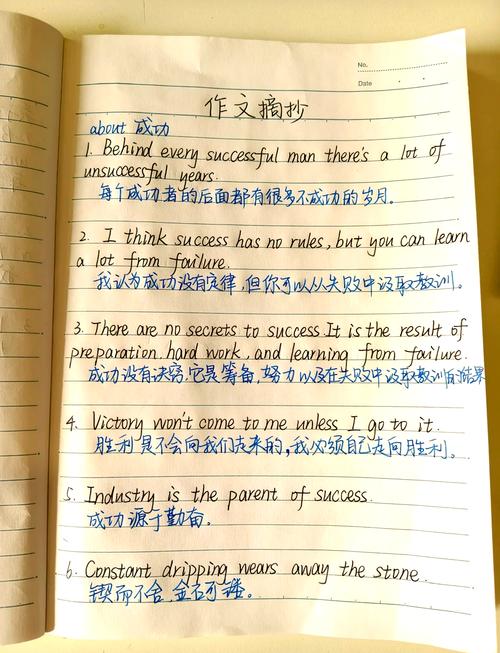 No.
Date
作文摘抄
about 成功
1. Behind every successful man there's a lot of
unsuccessful years.
每个成功者的后面都有很多不成功的岁月。
2. I think success has no rules, but you can learn
a lot from failure.
我认为成功没有定律,但你可以从失败中汲取教训。
3. There are no secrets to success.It is the result of
preparation, hard work, and learning from failure.
成功没有诀窍.它是筹备,努力以及在失败中汲取教训的结果
4. Victory won't come to me unless I go to it.
胜利是不会向我们走来的,我必须自己走向胜利。
5. Industry is the parent of success.
成功源于勤奋。
6. Constant dripping wears away the stone.
锲而不舍,金石可镂。